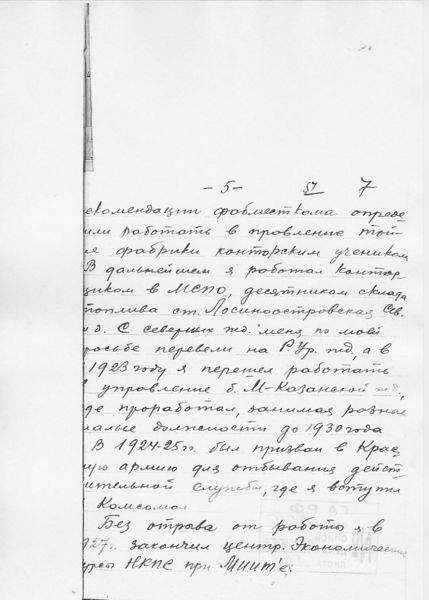 -5- 51 7
екомендации фабместкома опреде
или работать в провление той
е фабрики конторским учеником
В дальнейшем я работал контор
щиком в МСПО, десятником склада
топлива ст. Лосиноостровская Сев.
д. С северных жд. меня по моей
росьбе перевели на Р.Ур. жд, а в
1923 году я перешел работать
в управление б. М-Казанской жд,
де проработал, занимая разные
малые должности до 1930 года
В 1924-25 гг. был призван в Крас
ную армию для отбывания дейст
вительной службы, где я вступил
Комсомол
Без отрыва от работы я в
927 г. закончил центр. Экономические
урсы НКПС при Миит'е.
ГА РФ